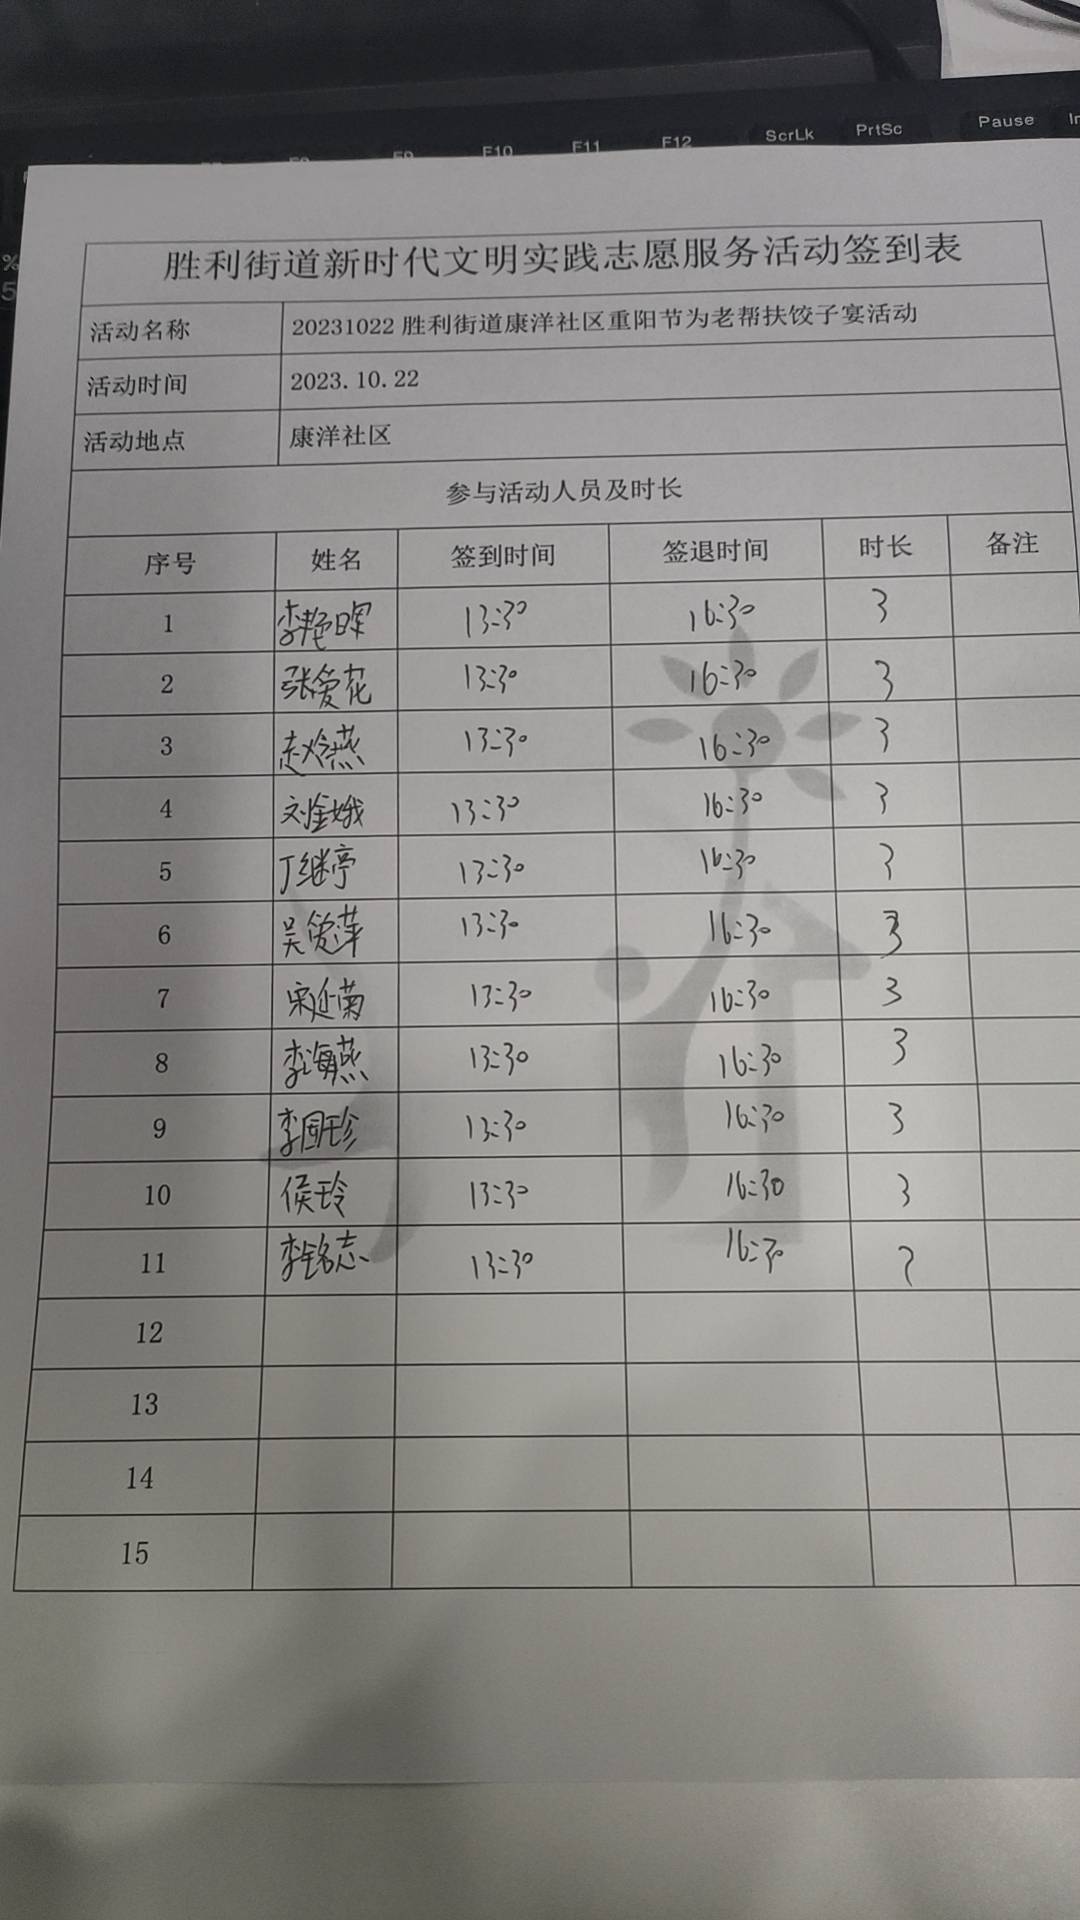 F9 F10 F11 F12 ScrLk PrtSc Pause
%
5
胜利街道新时代文明实践志愿服务活动签到表
活动名称 20231022 胜利街道康洋社区重阳节为老帮扶饺子宴活动
活动时间 2023.10.22
活动地点 康洋社区
参与活动人员及时长
序号 姓名 签到时间 签退时间 时长 备注
1 李艳晖 13:30 16:30 3
2 张爱花 13:30 16:30 3
3 赵玲燕 13:30 16:30 3
4 刘金娥 13:30 16:30 3
5 丁继亭 13:30 16:30 3
6 吴爱萍 13:30 16:30 3
7 宋延菊 13:30 16:30 3
8 李海燕 13:30 16:30 3
9 李国珍 13:30 16:30 3
10 侯玲 13:30 16:30 3
11 李铭志 13:30 16:30
12
13
14
15